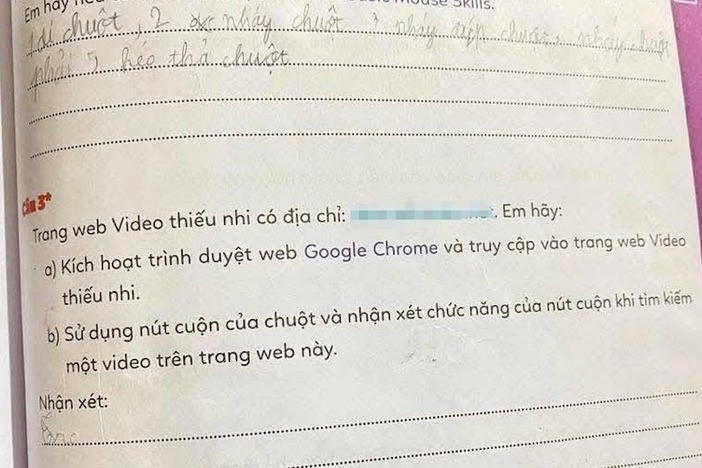 Em hãy Mouse Skills.
chuột, 2 nháy chuột, 3 nháy chuột, nháy chuột
phải, 5 kéo thả chuột
Câu 3*
Trang web Video thiếu nhi có địa chỉ: . Em hãy:
a) Kích hoạt trình duyệt web Google Chrome và truy cập vào trang web Video
thiếu nhi.
b) Sử dụng nút cuộn của chuột và nhận xét chức năng của nút cuộn khi tìm kiếm
một video trên trang web này.
Nhận xét: